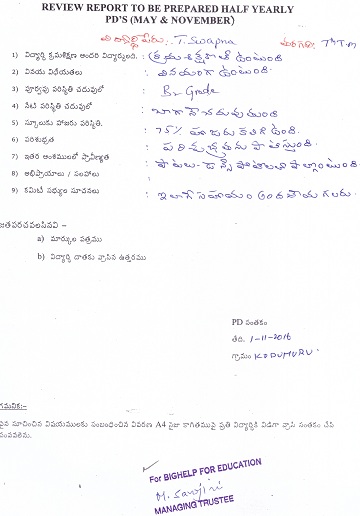 REVIEW REPORT TO BE PREPARED HALF YEARLY
PD'S (MAY & NOVEMBER)
విద్యార్థి పేరు:- T. Swapna తరగతి: 7th T.M
1) విద్యార్థి క్రమశిక్షణ అందరి విద్యార్థులలో. : క్రమశిక్షణతో ఉంటుంది
2) వినయ విధేయతలు : వినయంగా ఉంటుంది.
3) పూర్వపు పరిస్థితి చదువులో : B2 Grade
4) నేటి పరిస్థితి చదువులో : బాగానే చదువుతుంది
5) స్కూలుకు హాజరు పరిస్థితి. : 75% హాజరు కలిగి ఉంది.
6) పరిశుభ్రత : పరిశుభ్రతను పాటిస్తుంది.
7) ఇతర అంశములలో ప్రావీణ్యత : పాటలు- డాన్స్ పోటీలలో పాల్గొంటుంది.
8) అభిప్రాయాలు / సలహాలు
9) కమిటీ సభ్యుల సూచనలు : ఇలాగే సహాయం అందచేయగలరు.
జతపరచవలసినవి –
a) మార్కుల పత్రము
b) విద్యార్థి దాతకు వ్రాసిన ఉత్తరము
PD సంతకం
తేది. 1-11-2016
గ్రామం KODUMURU
గమనిక:–
పైన సూచించిన విషయములకు సంబంధించిన వివరణ A4 సైజు కాగితముపై ప్రతి విద్యార్థికి విడిగా వ్రాసి సంతకం చేసి
పంపవలెను.
For BIGHELP FOR EDUCATION
M. Sanjini
MANAGING TRUSTEE